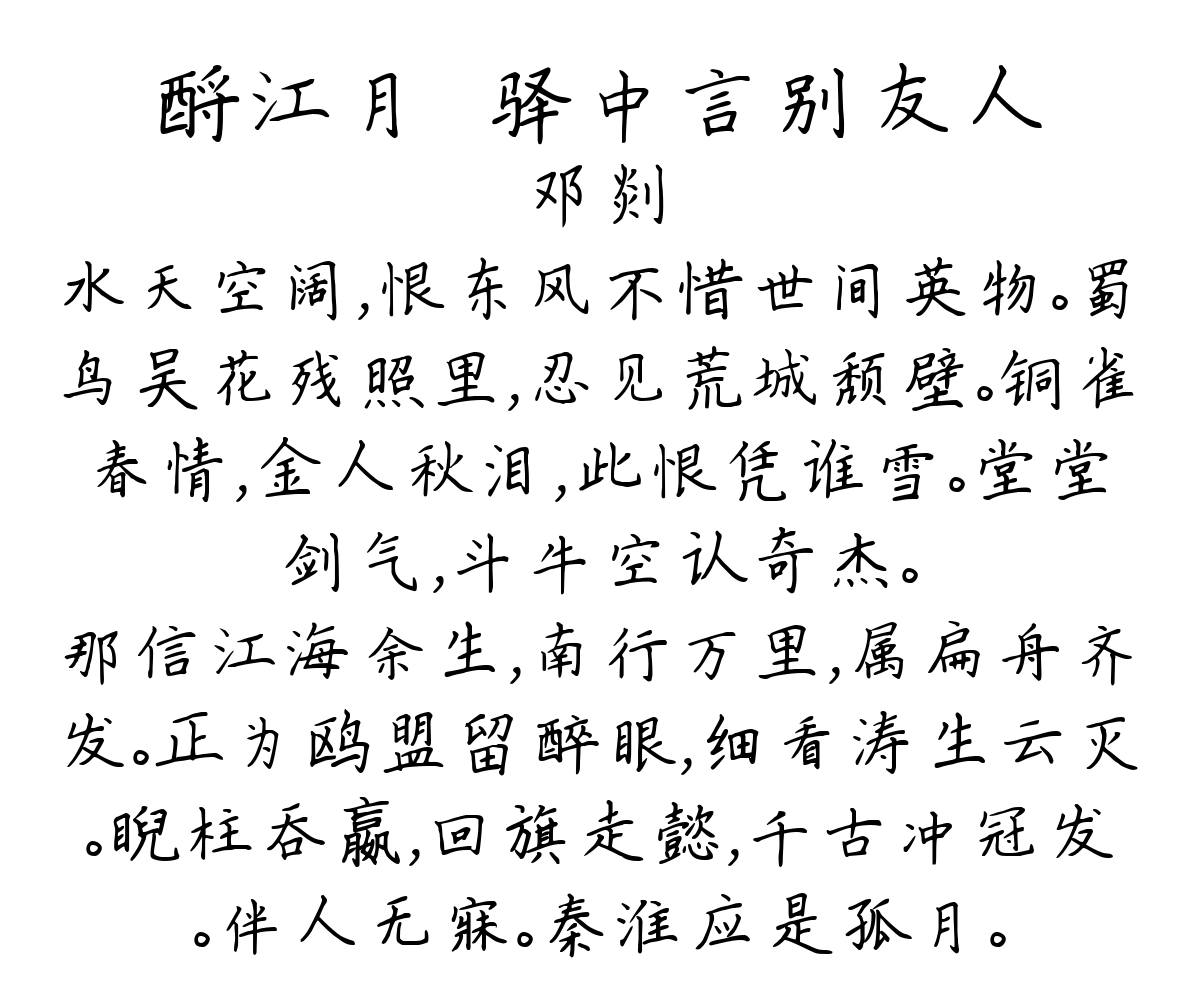 酹江月 驿中言别友人
邓剡
水天空阔,恨东风不惜世间英物。蜀
鸟吴花残照里,忍见荒城颓壁。铜雀
春情,金人秋泪,此恨凭谁雪。堂堂
剑气,斗牛空认奇杰。
那信江海余生,南行万里,属扁舟齐
发。正为鸥盟留醉眼,细看涛生云灭
。睨柱吞嬴,回旗走懿,千古冲冠发
。伴人无寐。秦淮应是孤月。